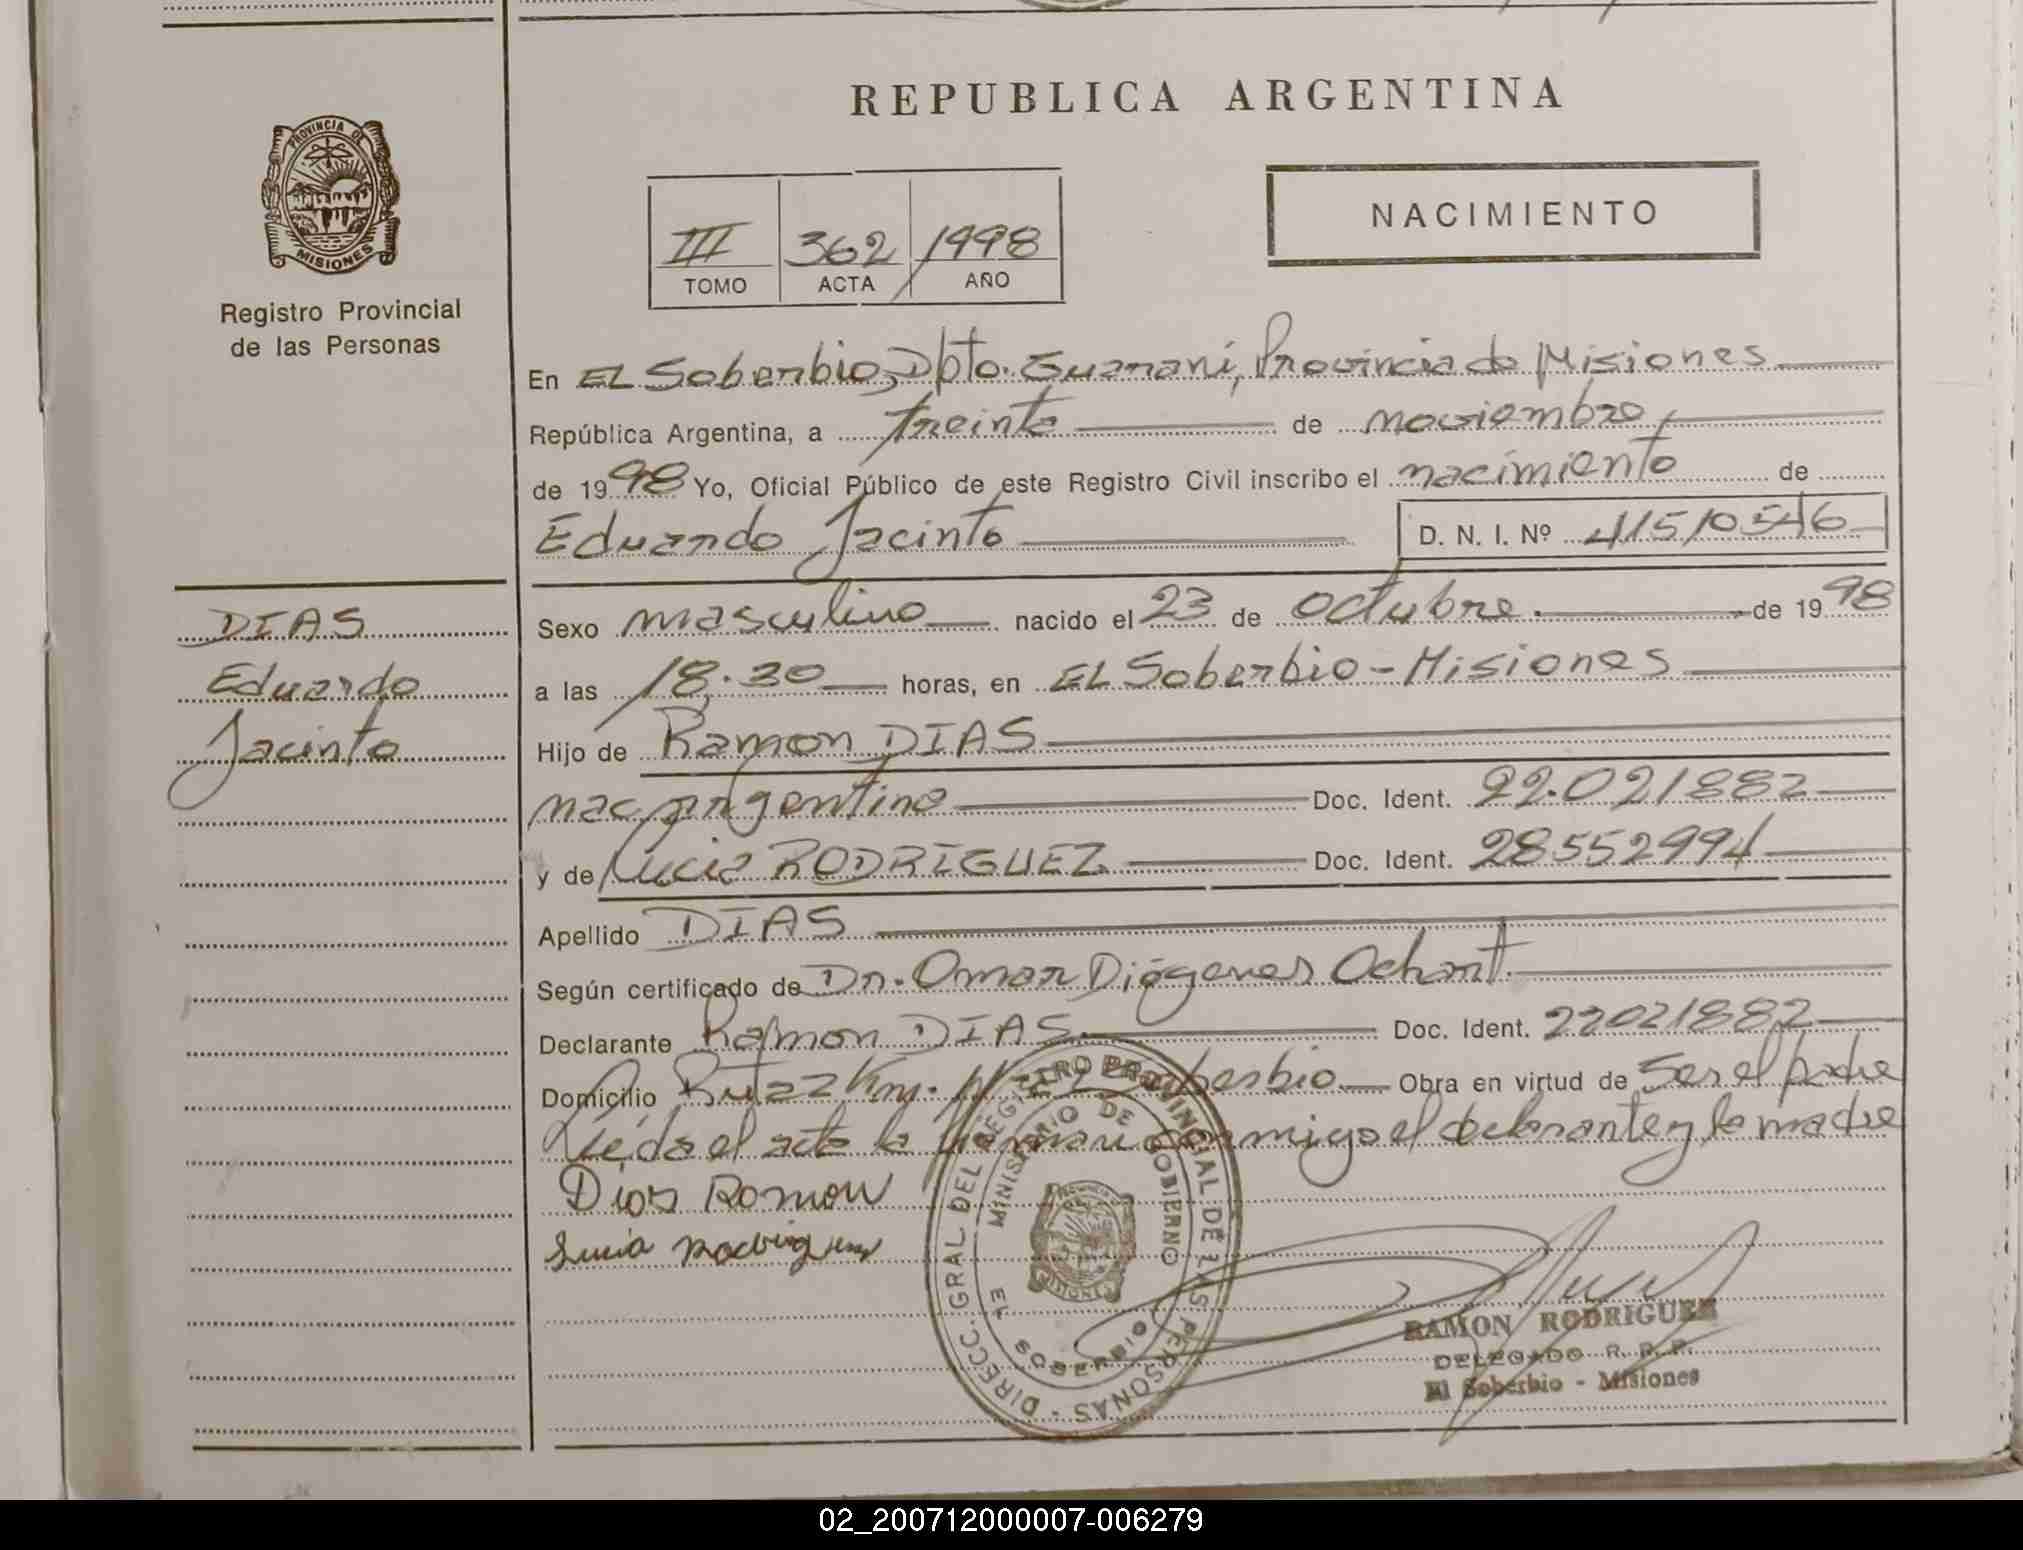 REPUBLICA ARGENTINA
PROVINCIA DE
MISIONES
Registro Provincial
de las Personas
III 362 1998
TOMO ACTA AÑO
NACIMIENTO
En EL Soberbio, Dpto. Guaraní, Provincia de Misiones
República Argentina, a treinta de noviembre
de 1998 Yo, Oficial Público de este Registro Civil inscribo el nacimiento de
Eduardo Jacinto D. N. I. Nº 41510546
DIAS
Eduardo
Jacinto
Sexo masculino nacido el 23 de octubre de 1998
a las 18.30 horas, en EL Soberbio - Misiones
Hijo de Ramon DIAS
nac argentina Doc. Ident. 22.021882
y de Lucia RODRIGUEZ Doc. Ident. 28552994
Apellido DIAS
Según certificado de Dr. Omar Diógenes Ochant
Declarante Ramon DIAS Doc. Ident. 22021882
Domicilio Ruta 2 Km. Soberbio Obra en virtud de Ser el padre
Leída el acta la firman conmigo el declarante y la madre
Dias Ramon
Lucia Rodriguez
DIRECC. GRAL DEL REGISTRO PROVINCIAL DE LAS PERSONAS
MINISTERIO DE GOBIERNO
EL SOBERBIO
MISIONES
RAMON RODRIGUEZ
DELEGADO R. P. P.
El Soberbio - Misiones
02_200712000007-006279